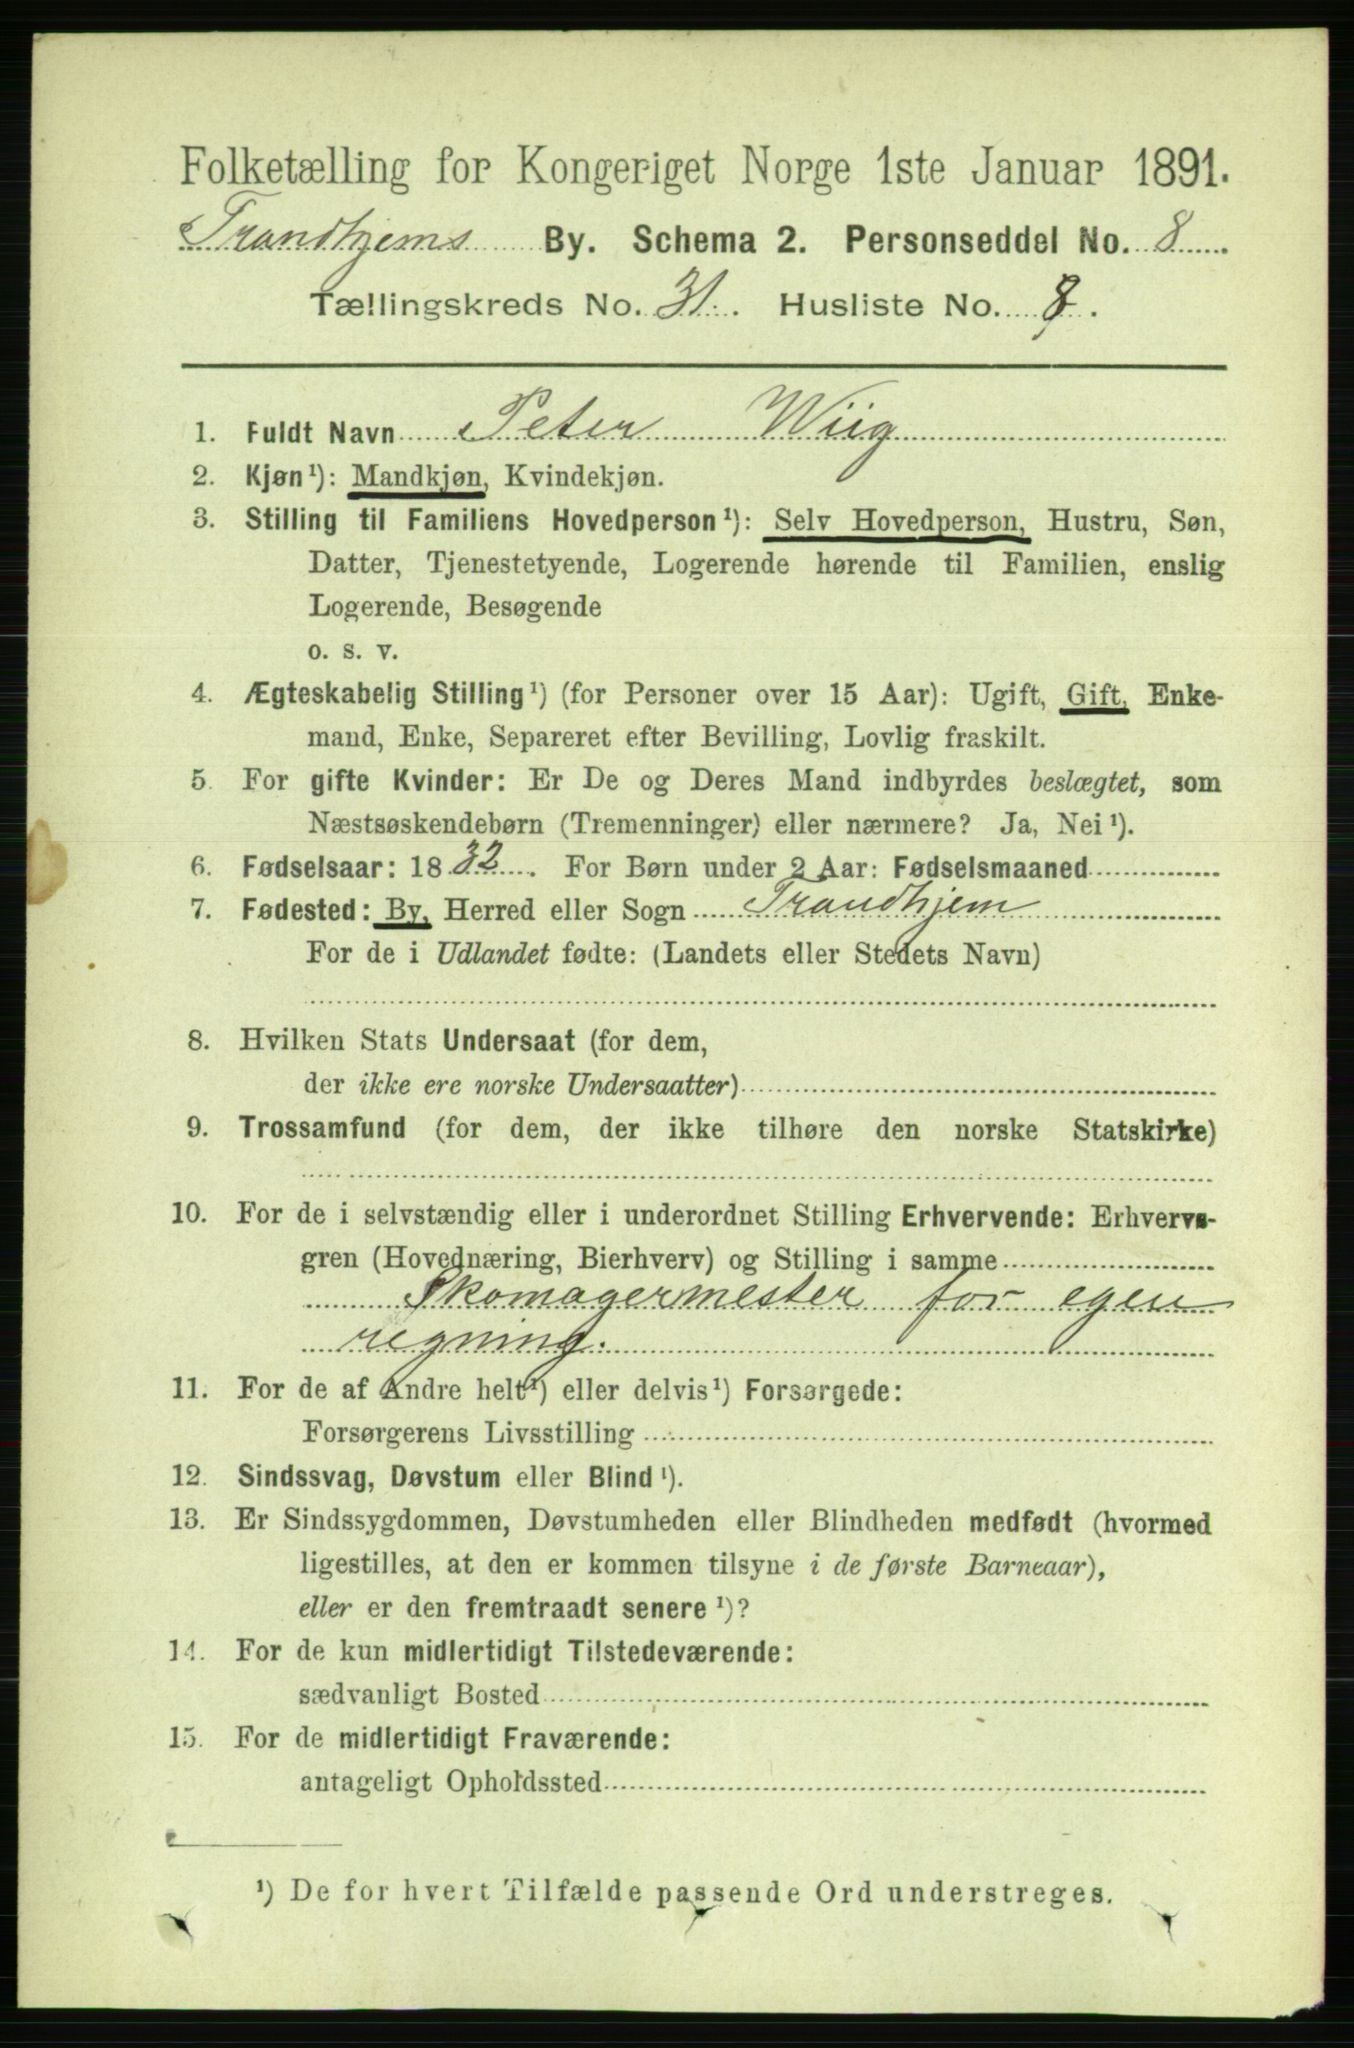 Folketælling for Kongeriget Norge 1ste Januar 1891.
Trondhjems By. Schema 2. Personseddel No. 8
Tællingskreds No. 31. Husliste No. 8.
1. Fuldt Navn Peter Wiig
2. Kjøn¹): Mandkjøn, Kvindekjøn.
3. Stilling til Familiens Hovedperson¹): Selv Hovedperson, Hustru, Søn,
Datter, Tjenestetyende, Logerende hørende til Familien, enslig
Logerende, Besøgende
o. s. v.
4. Ægteskabelig Stilling¹) (for Personer over 15 Aar): Ugift, Gift, Enke-
mand, Enke, Separeret efter Bevilling, Lovlig fraskilt.
5. For gifte Kvinder: Er De og Deres Mand indbyrdes beslægtet, som
Næstsøskendebørn (Tremenninger) eller nærmere? Ja, Nei¹).
6. Fødselsaar: 1832. For Børn under 2 Aar: Fødselsmaaned
7. Fødested: By, Herred eller Sogn Trondhjem
For de i Udlandet fødte: (Landets eller Stedets Navn)
8. Hvilken Stats Undersaat (for dem,
der ikke ere norske Undersaatter)
9. Trossamfund (for dem, der ikke tilhøre den norske Statskirke)
10. For de i selvstændig eller i underordnet Stilling Erhvervende: Erhvervs-
gren (Hovednæring, Bierhverv) og Stilling i samme
Skomagermester for egen
regning.
11. For de af Andre helt¹) eller delvis¹) Forsørgede:
Forsørgerens Livsstilling
12. Sindssvag, Døvstum eller Blind¹).
13. Er Sindssygdommen, Døvstumheden eller Blindheden medfødt (hvormed
ligestilles, at den er kommen tilsyne i de første Barneaar),
eller er den fremtraadt senere¹)?
14. For de kun midlertidigt Tilstedeværende:
sædvanligt Bosted
15. For de midlertidigt Fraværende:
antageligt Opholdssted
¹) De for hvert Tilfælde passende Ord understreges.